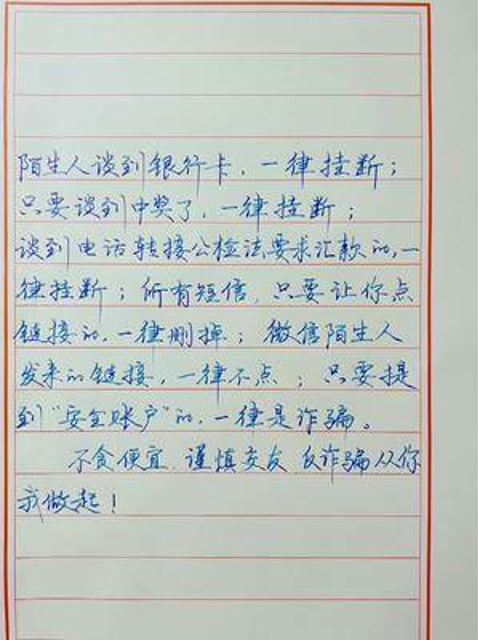 陌生人谈到银行卡，一律挂断；
只要谈到中奖了，一律挂断；
谈到电话转接公检法要求汇款的，一
律挂断；所有短信，只要让你点
链接的，一律删掉；微信陌生人
发来的链接，一律不点；只要提
到“安全账户”的，一律是诈骗。
不贪便宜，谨慎交友，反诈骗从你
我做起！